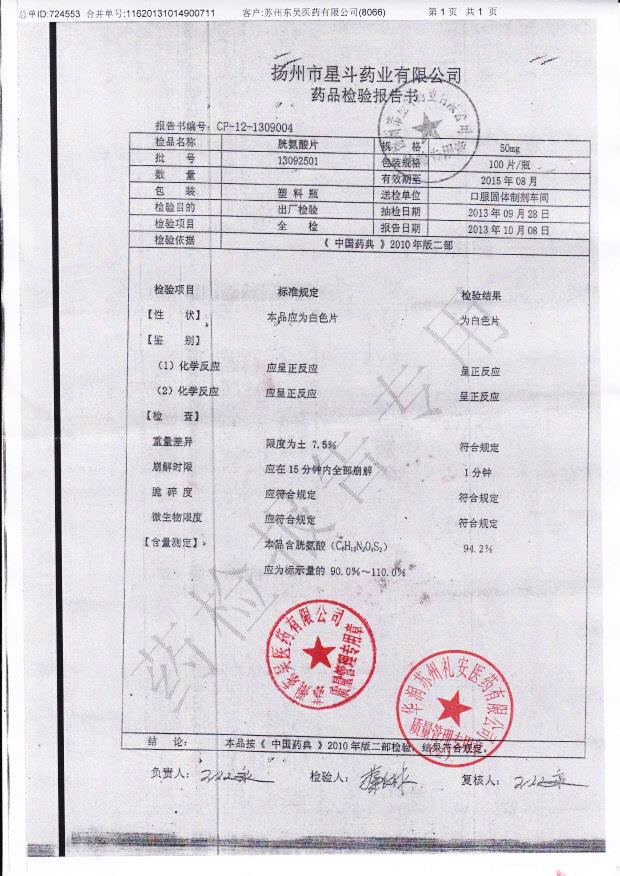 总单ID:724553 合并单号:11620131014900711 客户:苏州东吴医药有限公司(8066) 第 1 页 共 1 页
扬州市星斗药业有限公司
药品检验报告书
报告书编号: CP-12-1309004
检品名称 胱氨酸片 规 格 50mg
批 号 13092501 包装规格 100 片/瓶
数 量 有效期至 2015 年 08 月
包 装 塑 料 瓶 送检单位 口服固体制剂车间
检验目的 出厂检验 抽检日期 2013 年 09 月 28 日
检验项目 全 检 报告日期 2013 年 10 月 08 日
检验依据 《 中国药典 》2010 年版二部
检验项目 标准规定 检验结果
【性 状】 本品应为白色片 为白色片
【鉴 别】
（1）化学反应 应呈正反应 呈正反应
（2）化学反应 应呈正反应 呈正反应
【检 查】
重量差异 限度为± 7.5% 符合规定
崩解时限 应在 15 分钟内全部崩解 1 分钟
脆 碎 度 应符合规定 符合规定
微生物限度 应符合规定 符合规定
【含量测定】 本品含胱氨酸（C₆H₁₂N₂O₄S₂） 94.2%
应为标示量的 90.0%～110.0%
药检报告专用
东吴医药有限公司
质量管理专用章
华润苏州礼安医药有限公司
质量管理专用章
结 论: 本品按《 中国药典 》2010 年版二部检验, 结果符合规定。
负责人: 检验人: 复核人: